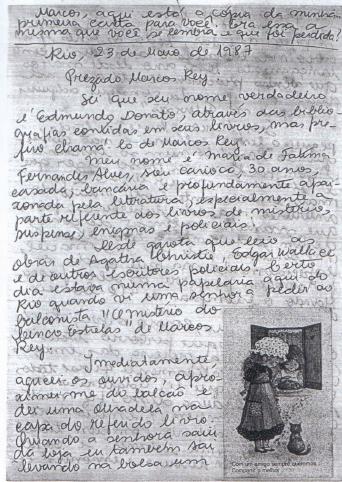 Marcos, aqui está a cópia da minha
primeira carta para você. Era essa a
mesma que você se lembra e que foi perdida?
Rio, 23 de Maio de 1987
Prezado Marcos Rey:
Sei que seu nome verdadeiro
é Edmundo Donato, através das biblio-
grafias contidas em seus livros, mas pre-
firo chamá-lo de Marcos Rey.
Meu nome é Maria de Fátima
Fernandes Alves, sou carioca, 30 anos,
casada, bancária e profundamente apai-
xonada pela literatura, especialmente a
parte referente aos livros de mistérios,
suspense, enigmas e policiais.
Desde garota que leio as
obras de Agatha Christie, Edgar Wallace
e de outros escritores policiais. Certo
dia estava numa papelaria aqui do
Rio quando vi uma senhora pedir ao
balconista "O mistério do
Cinco Estrelas" de Marcos
Rey.
Imediatamente,
agucei os ouvidos, apro-
ximei-me do balcão e
dei uma olhadela na
capa do referido livro.
Quando a senhora saiu
da loja eu também saí
levando na bolsa um
Com um amigo sempre queremos
Compartir o melhor